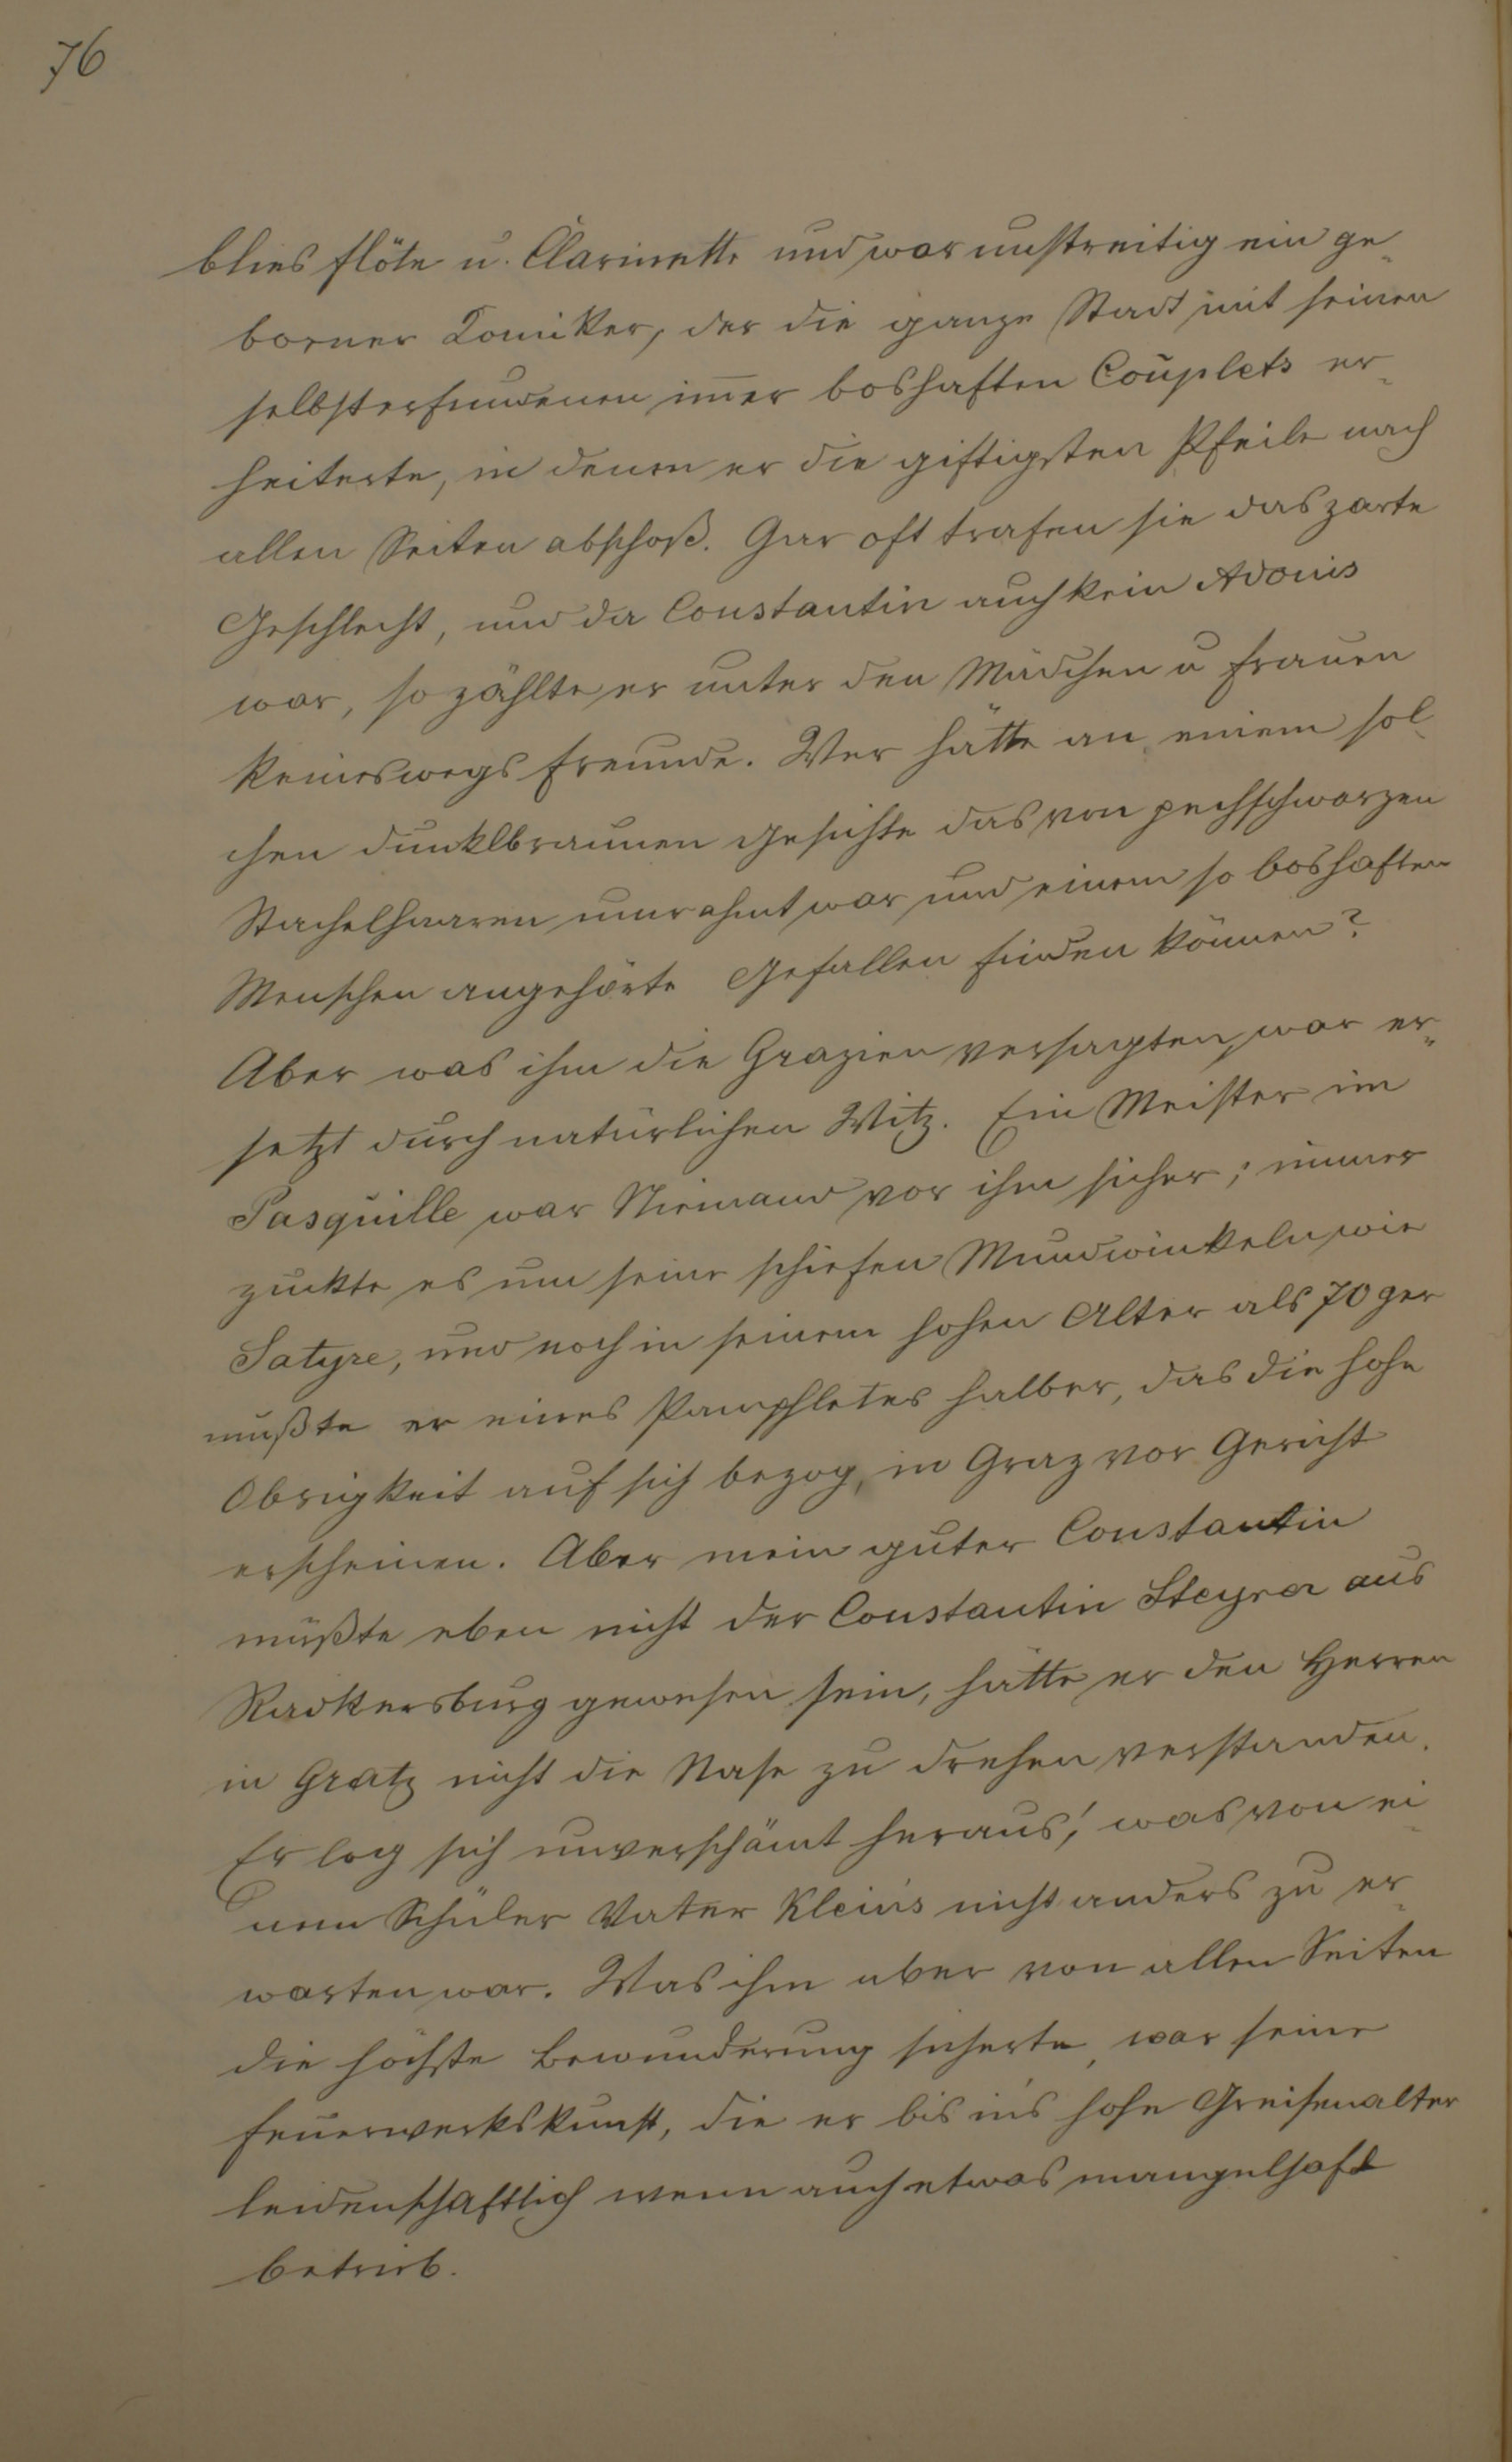 76
blies Flöte u. Clarinette und war unstreitig ein ge-
borner Komiker, der die ganze Stadt mit seinen
selbsterfundenen im̄er boshaften Couplets er-
heiterte, in denen er die giftigsten Pfeile nach
allen Seiten abschoß. Gar oft trafen sie das zarte
Geschlecht, und da Constantin auch kein Adonis
war, so zählte er unter den Mädchen u Frauen
keineswegs Freunde. Wer hätte an einem sol-
chen dunklbraunen Gesichte das von pechschwarzen
Stachelhaaren umrahmt war und einem so boshaften
Menschen angehörte Gefallen finden können?
Aber was ihm die Grazien versagten, war er-
setzt durch natürlichen Witz. Ein Meister im
Pasquille war Niemand vor ihm sicher; immer
zuckte es um seine schiefen Mundwinkeln wie
Satyre, und noch in seinem hohen Alter als 70ger
mußte er eines Pamphletes halber, das die hohe
Obrigkeit auf sich bezog, in Graz vor Gericht
erscheinen. Aber mein guter Constantin
müßte eben nicht der Constantin Steyrer aus
Radkersburg gewesen sein, hätte er den Herren
in Gratz nicht die Nase zu drehen verstanden.
Er log sich unverschämt heraus, was von ei-
nem Schüler Vater Klein's nicht anders zu er-
warten war. Was ihm aber von allen Seiten
die höchste Bewunderung sicherte, war seine
Feuerwerkskunst, die er bis in's hohe Greisenalter
leidenschaftlich wenn auch etwas mangelhaft
betrieb.